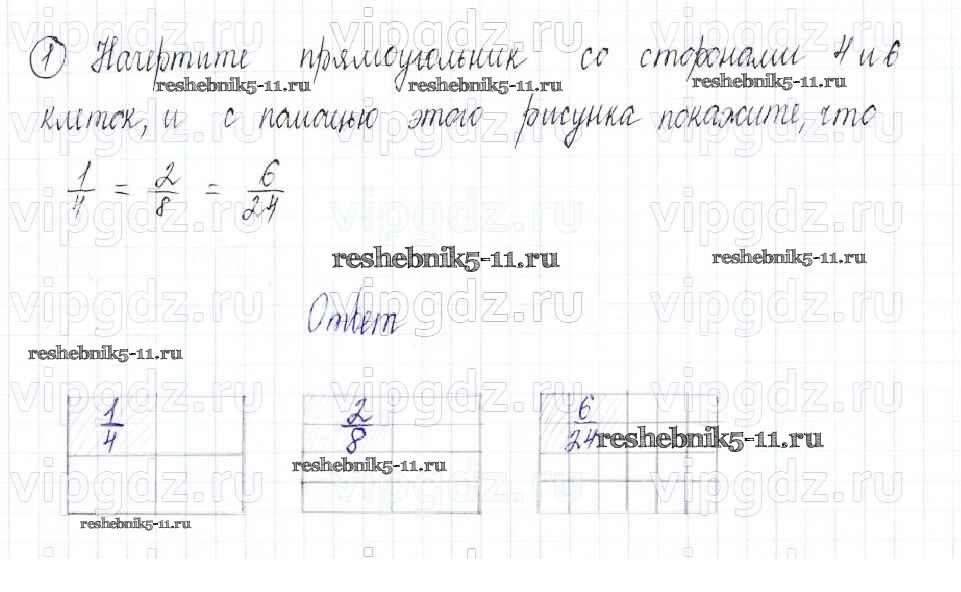 ① Начертите прямоугольник со сторонами 4 и 6
reshebnik5-11.ru reshebnik5-11.ru reshebnik5-11.ru
клеток, и с помощью этого рисунка покажите, что
1/4 = 2/8 = 6/24
vipgdz.ru vipgdz.ru vipgdz.ru
reshebnik5-11.ru reshebnik5-11.ru
Ответ
reshebnik5-11.ru
1/4 2/8 6/24
reshebnik5-11.ru
reshebnik5-11.ru
reshebnik5-11.ru